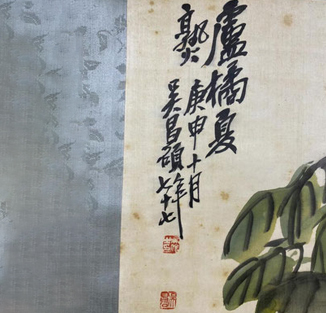 盧橘夏
熟庚申十月
吴昌碩年七十七